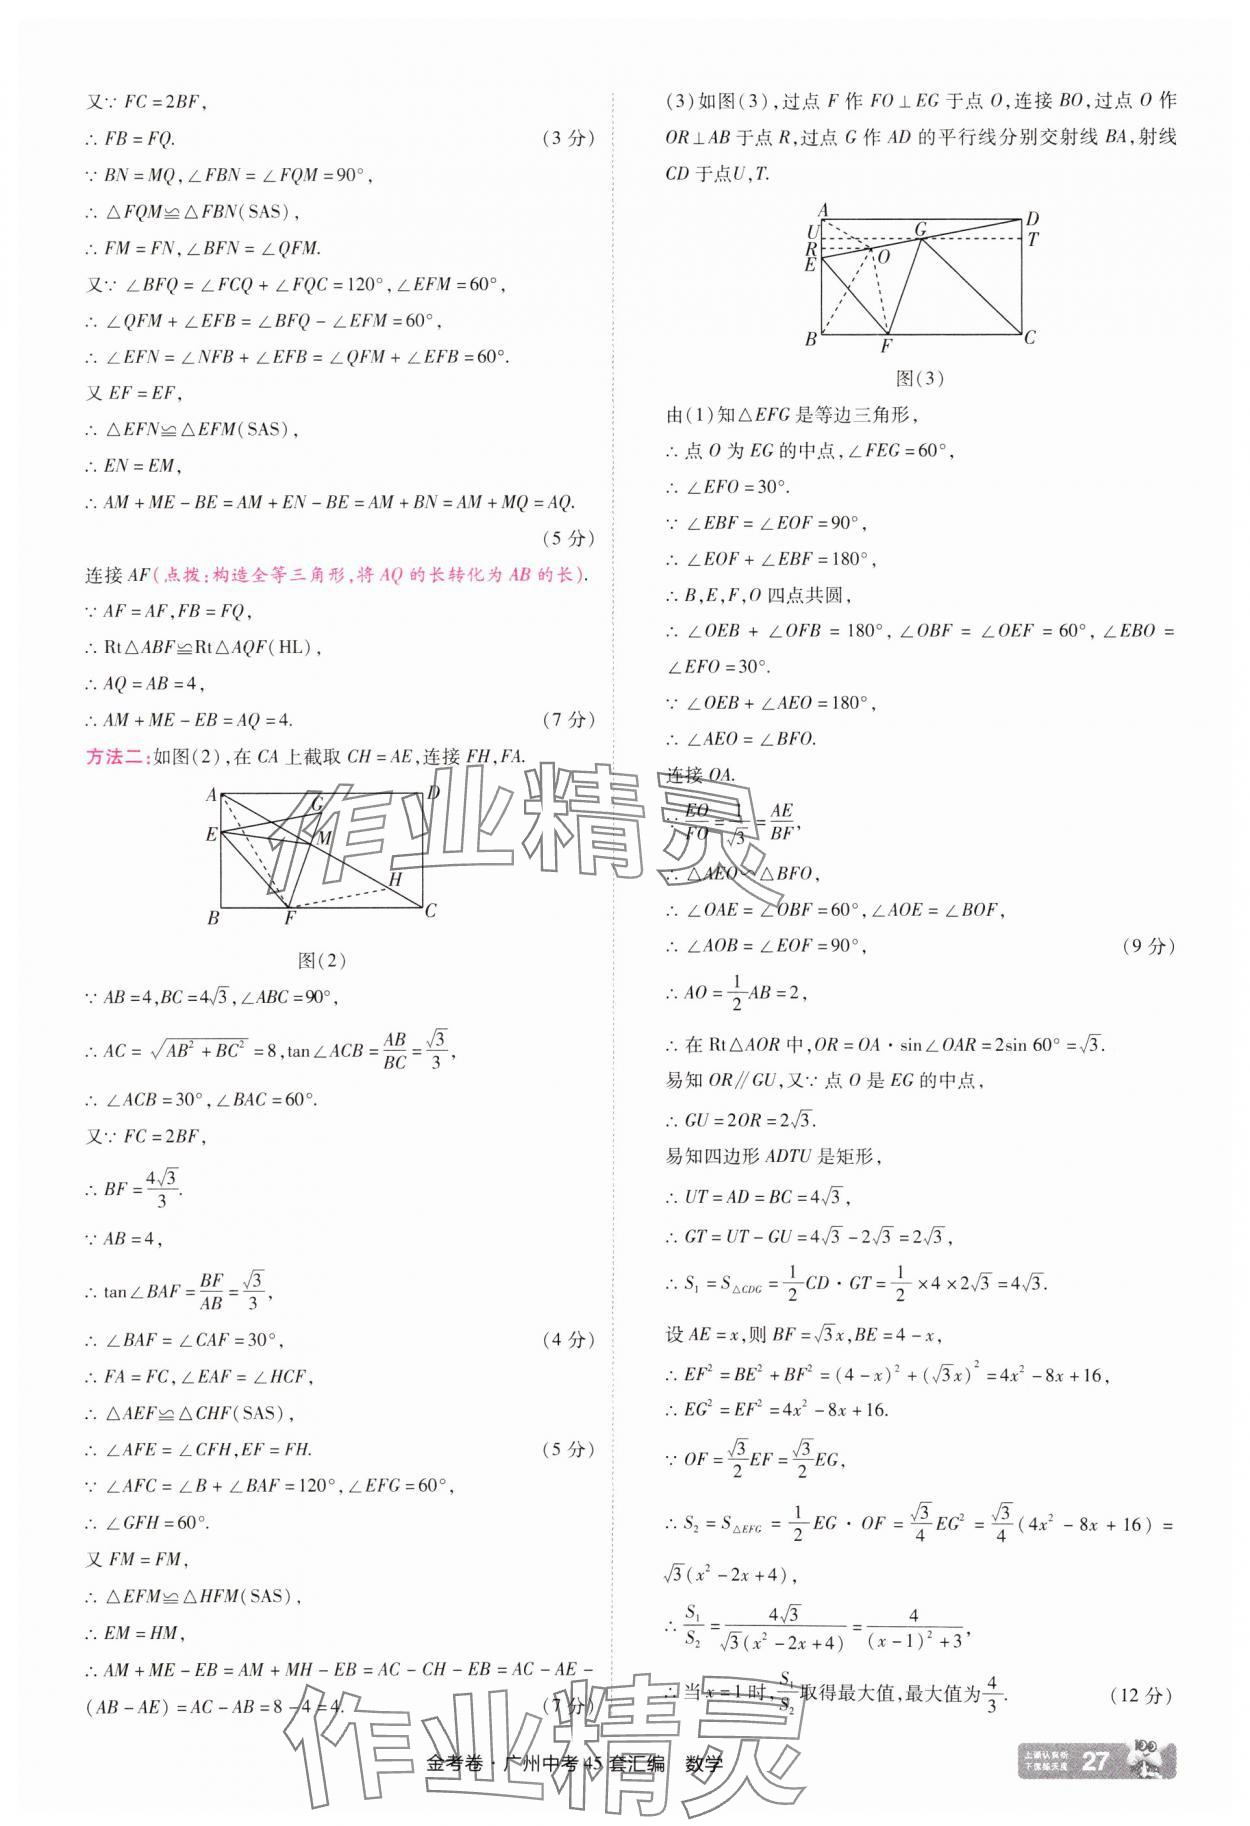 又∵ FC=2BF,
∴ FB=FQ. (3分)
∵ BN=MQ,∠FBN=∠FQM=90°,
∴ △FQM≌△FBN(SAS),
∴ FM=FN,∠BFN=∠QFM.
又∵ ∠BFQ=∠FCQ+∠FQC=120°,∠EFM=60°,
∴ ∠QFM+∠EFB=∠BFQ-∠EFM=60°,
∴ ∠EFN=∠NFB+∠EFB=∠QFM+∠EFB=60°.
又 EF=EF,
∴ △EFN≌△EFM(SAS),
∴ EN=EM,
∴ AM+ME-BE=AM+EN-BE=AM+BN=AM+MQ=AQ.
(5分)
连接 AF(点拨:构造全等三角形,将 AQ 的长转化为 AB 的长).
∵ AF=AF,FB=FQ,
∴ Rt△ABF≌Rt△AQF(HL),
∴ AQ=AB=4,
∴ AM+ME-EB=AQ=4. (7分)
方法二:如图(2),在 CA 上截取 CH=AE,连接 FH,FA.
A D
G
E M
H
B F C
图(2)
∵ AB=4,BC=4√3,∠ABC=90°,
∴ AC=√(AB²+BC²)=8,tan∠ACB=AB/BC=√3/3,
∴ ∠ACB=30°,∠BAC=60°.
又∵ FC=2BF,
∴ BF=4√3/3.
∵ AB=4,
∴ tan∠BAF=BF/AB=√3/3,
∴ ∠BAF=∠CAF=30°, (4分)
∴ FA=FC,∠EAF=∠HCF,
∴ △AEF≌△CHF(SAS),
∴ ∠AFE=∠CFH,EF=FH. (5分)
∵ ∠AFC=∠B+∠BAF=120°,∠EFG=60°,
∴ ∠GFH=60°.
又 FM=FM,
∴ △EFM≌△HFM(SAS),
∴ EM=HM,
∴ AM+ME-EB=AM+MH-EB=AC-CH-EB=AC-AE-
(AB-AE)=AC-AB=8-4=4. (7分)
(3)如图(3),过点 F 作 FO⊥EG 于点 O,连接 BO,过点 O 作
OR⊥AB 于点 R,过点 G 作 AD 的平行线分别交射线 BA,射线
CD 于点U,T.
A D
U G T
R O
E
B F C
图(3)
由(1)知△EFG 是等边三角形,
∴ 点 O 为 EG 的中点,∠FEG=60°,
∴ ∠EFO=30°.
∵ ∠EBF=∠EOF=90°,
∴ ∠EOF+∠EBF=180°,
∴ B,E,F,O 四点共圆,
∴ ∠OEB+∠OFB=180°,∠OBF=∠OEF=60°,∠EBO=
∠EFO=30°.
∵ ∠OEB+∠AEO=180°,
∴ ∠AEO=∠BFO.
连接 OA.
∵ EO/FO=1/√3=AE/BF,
∴ △AEO∽△BFO,
∴ ∠OAE=∠OBF=60°,∠AOE=∠BOF,
∴ ∠AOB=∠EOF=90°, (9分)
∴ AO=1/2AB=2,
∴ 在 Rt△AOR 中,OR=OA·sin∠OAR=2sin 60°=√3.
易知 OR∥GU,又∵ 点 O 是 EG 的中点,
∴ GU=2OR=2√3.
易知四边形 ADTU 是矩形,
∴ UT=AD=BC=4√3,
∴ GT=UT-GU=4√3-2√3=2√3,
∴ S₁=S△CDG=1/2CD·GT=1/2×4×2√3=4√3.
设 AE=x,则 BF=√3x,BE=4-x,
∴ EF²=BE²+BF²=(4-x)²+(√3x)²=4x²-8x+16,
∴ EG²=EF²=4x²-8x+16.
∵ OF=√3/2EF=√3/2EG,
∴ S₂=S△EFG=1/2EG·OF=√3/4EG²=√3/4(4x²-8x+16)=
√3(x²-2x+4),
∴ S₁/S₂=4√3/(√3(x²-2x+4))=4/((x-1)²+3),
∴ 当 x=1 时,S₁/S₂取得最大值,最大值为4/3. (12分)
作业精灵
作业精灵
金考卷·广州中考45套汇编 数学
上课认真听
下课练天度
27